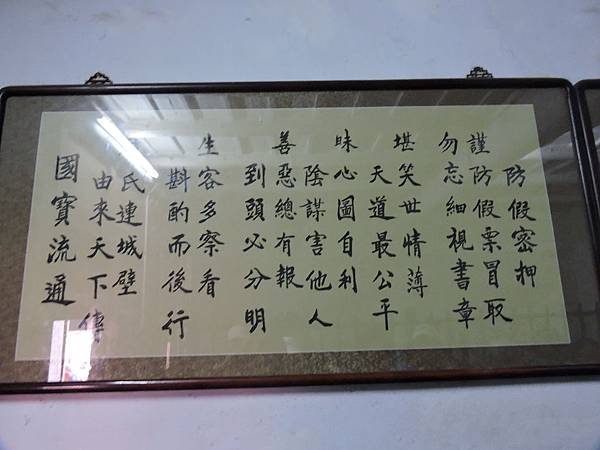 防假密押
謹防假票冒取
勿忘細視書章
堪笑世情薄
天道最公平
昧心圖自利
陰謀害他人
善惡總有報
到頭必分明
生客多察看
斟酌而後行
氏連城壁
由來天下傳
國寶流通